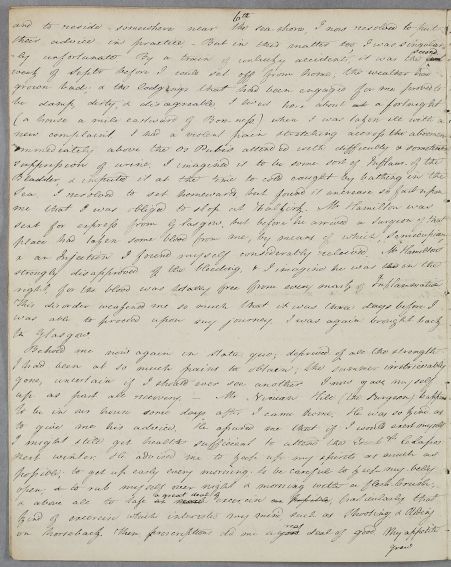 6th
and to reside somewhere near the sea shore, I now resolved to put
their advice in practice - But in this matter too, I was singular
ly unfortunate By a train of unlucky accidents, it was the second
week of Septr before I could set off from home, the weather was
grown bad: & the Lodgings that had been engaged for me proved to
be damp, dirty, & disagreeable I lived here about a fortnight
(a house a mile eastward of Bor-ness) when I was taken ill with a
new complaint I had a violent pain stretching across the abdomen
immediately above the Os Pubis attended with difficulty & sometimes
suppression of urine. I imagined it to be some sort of Inflam of the
Bladder, & imputed it at the time to cold caught by bathing in the
Sea. I resolved to set homeward but found it encrease so fast upon
me that I was obliged to stop at Falkirk. Mr Hamilton was
sent for express from Glasgow, but before he arrived a Surgeon of that
place had taken some blood from me, by means of which, Semicupium
& an Injection I found myself considerably relieved. Mr Hamilton
strongly disapproved of the bleeding, & I imagine he was in the
right for the blood was totally free from every mark of Inflammation
This disorder weakened me so much that it was three days before I
was able to proceed upon my journey. I was again brought back
to Glasgow
Behold me now again in statu quo; deprived of all the strength
I had been at so much pains to obtain; the summer irretrievably
gone, uncertain if I should ever see another I now gave myself
up as past all recovery. - Mr Hill (the Surgeon) happened
to be in our house some days after I came home. He was so good as
to give me his advice. He assured me that if I would exert myself
I might still get health sufficient to attend the Coll: Classes
next winter. He advised me to keep up my spirits as much as
possible; to get up early every morning; to be careful to keep my belly
open, & to rub myself over night & morning with a flesh brush;
& above all to take a great deal of exercise particularly that
kind of exercise which interested my mind such as Shooting & Riding
on horseback. These prescriptions did me a great deal of good My appetite
grew